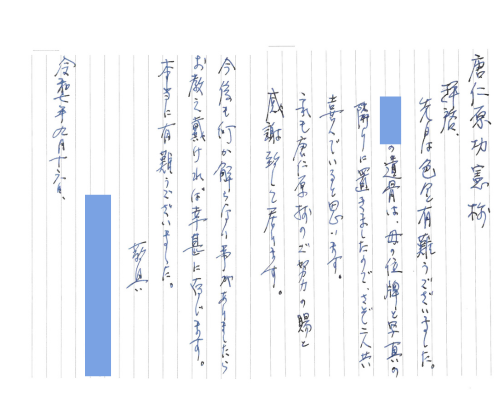 唐仁原功憲様
拝啓、
先月は色々有難うございました。
の遺骨は、母の位牌と写真の
隣りに置きましたので、さぞ二人共
喜んでいると思います。
之も唐仁原様のご努力の賜と
感謝致して居ります。
今後も何か解らない事がありましたら
お教え戴ければ幸甚に存じます。
本当に有難うございました。
敬具
令和七年九月十六日、